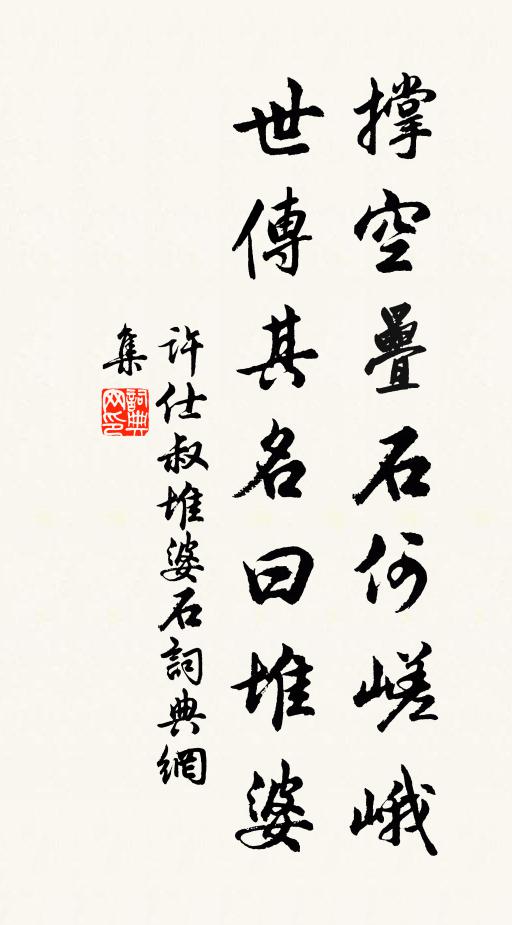 撐空疊石何嵯峨
世傳其名曰堆婆
許仕叔堆婆石詞典網
集
詞典
网印